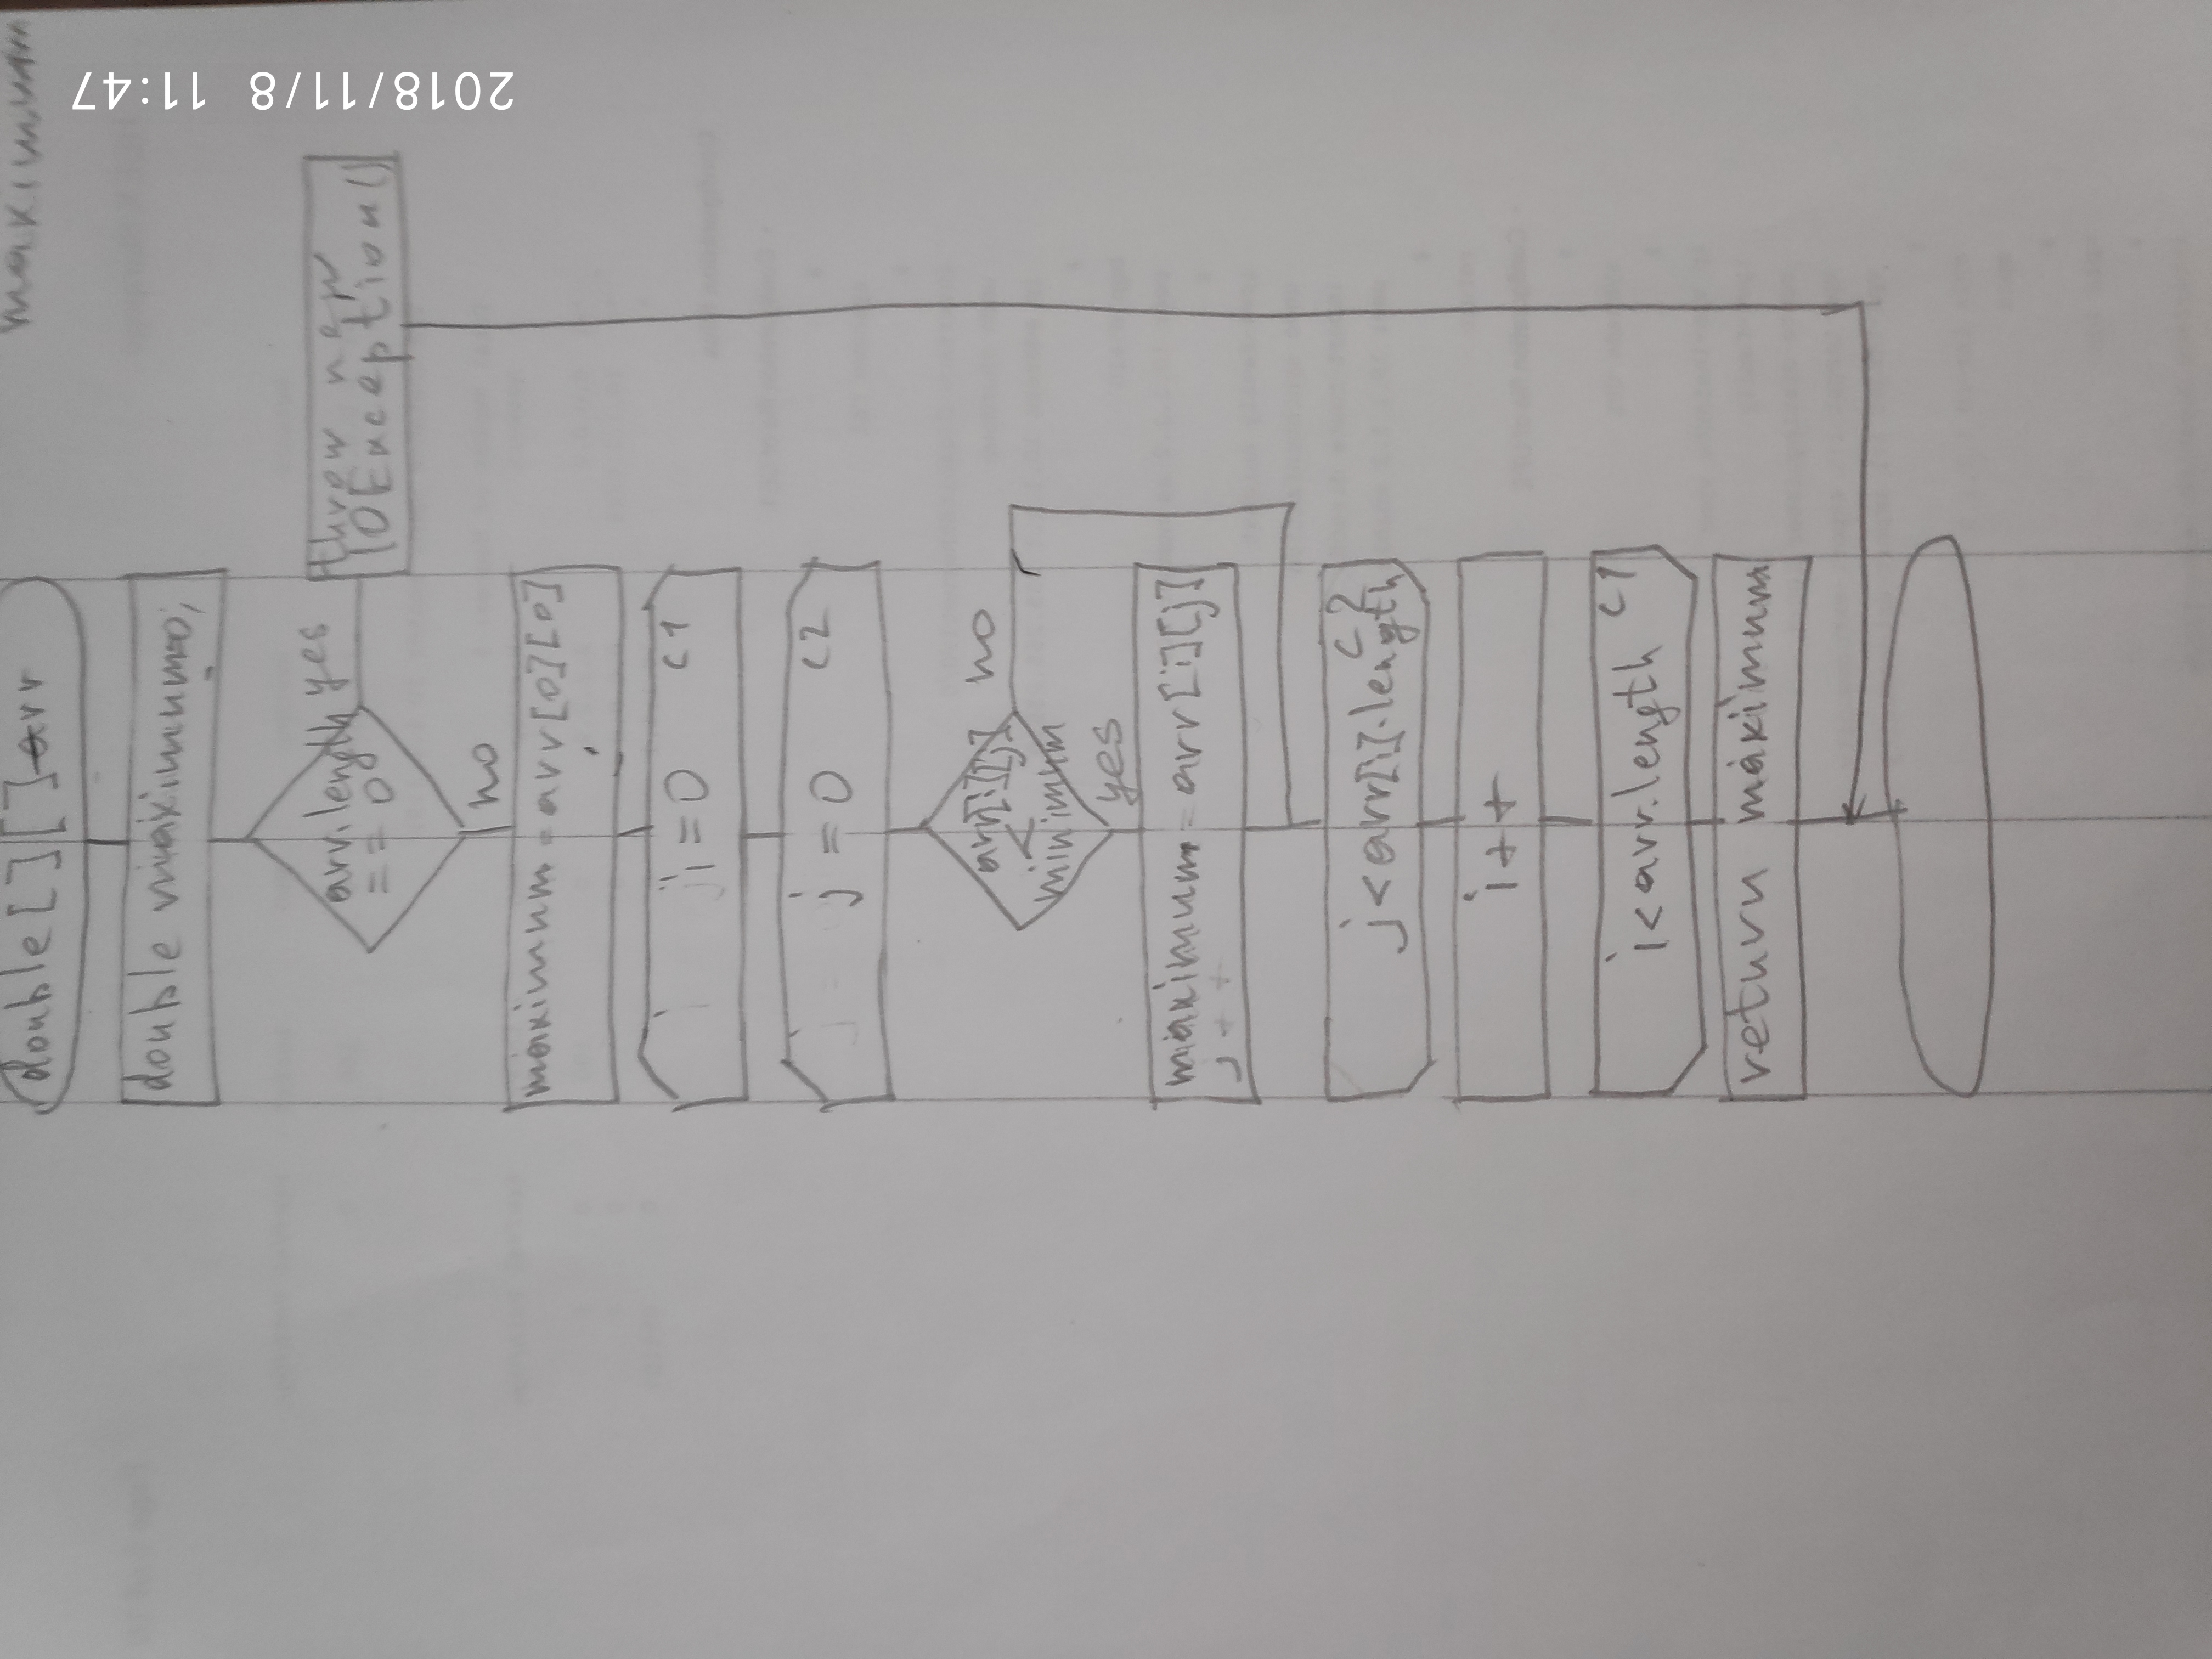 maximum
double[][] arr
double maximum=0;
arr.length
== 0
yes
no
threw new
IOException()
maximum = arr[0][0]
i = 0 c1
j = 0 c2
arr[i][j]
<
minimum
no
yes
maximum = arr[i][j]
j++
c2
j < arr[i].length
i++
i < arr.length c1
return maximum
2018/11/8 11:47